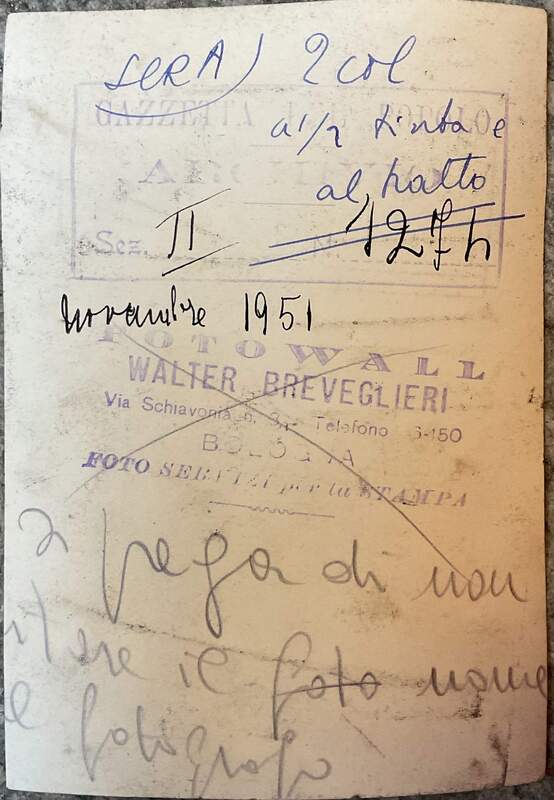 SERA) 2 col
a 1/2 tinta e
al, piatto
Sez. II
1274
novembre 1951
FOTOWALL
WALTER BREVEGLIERI
Via Schiavonia n. Telefono 6-150
BOLOGNA
FOTO SERVIZI per la STAMPA
si prega di non
re il foto nome
fotografo